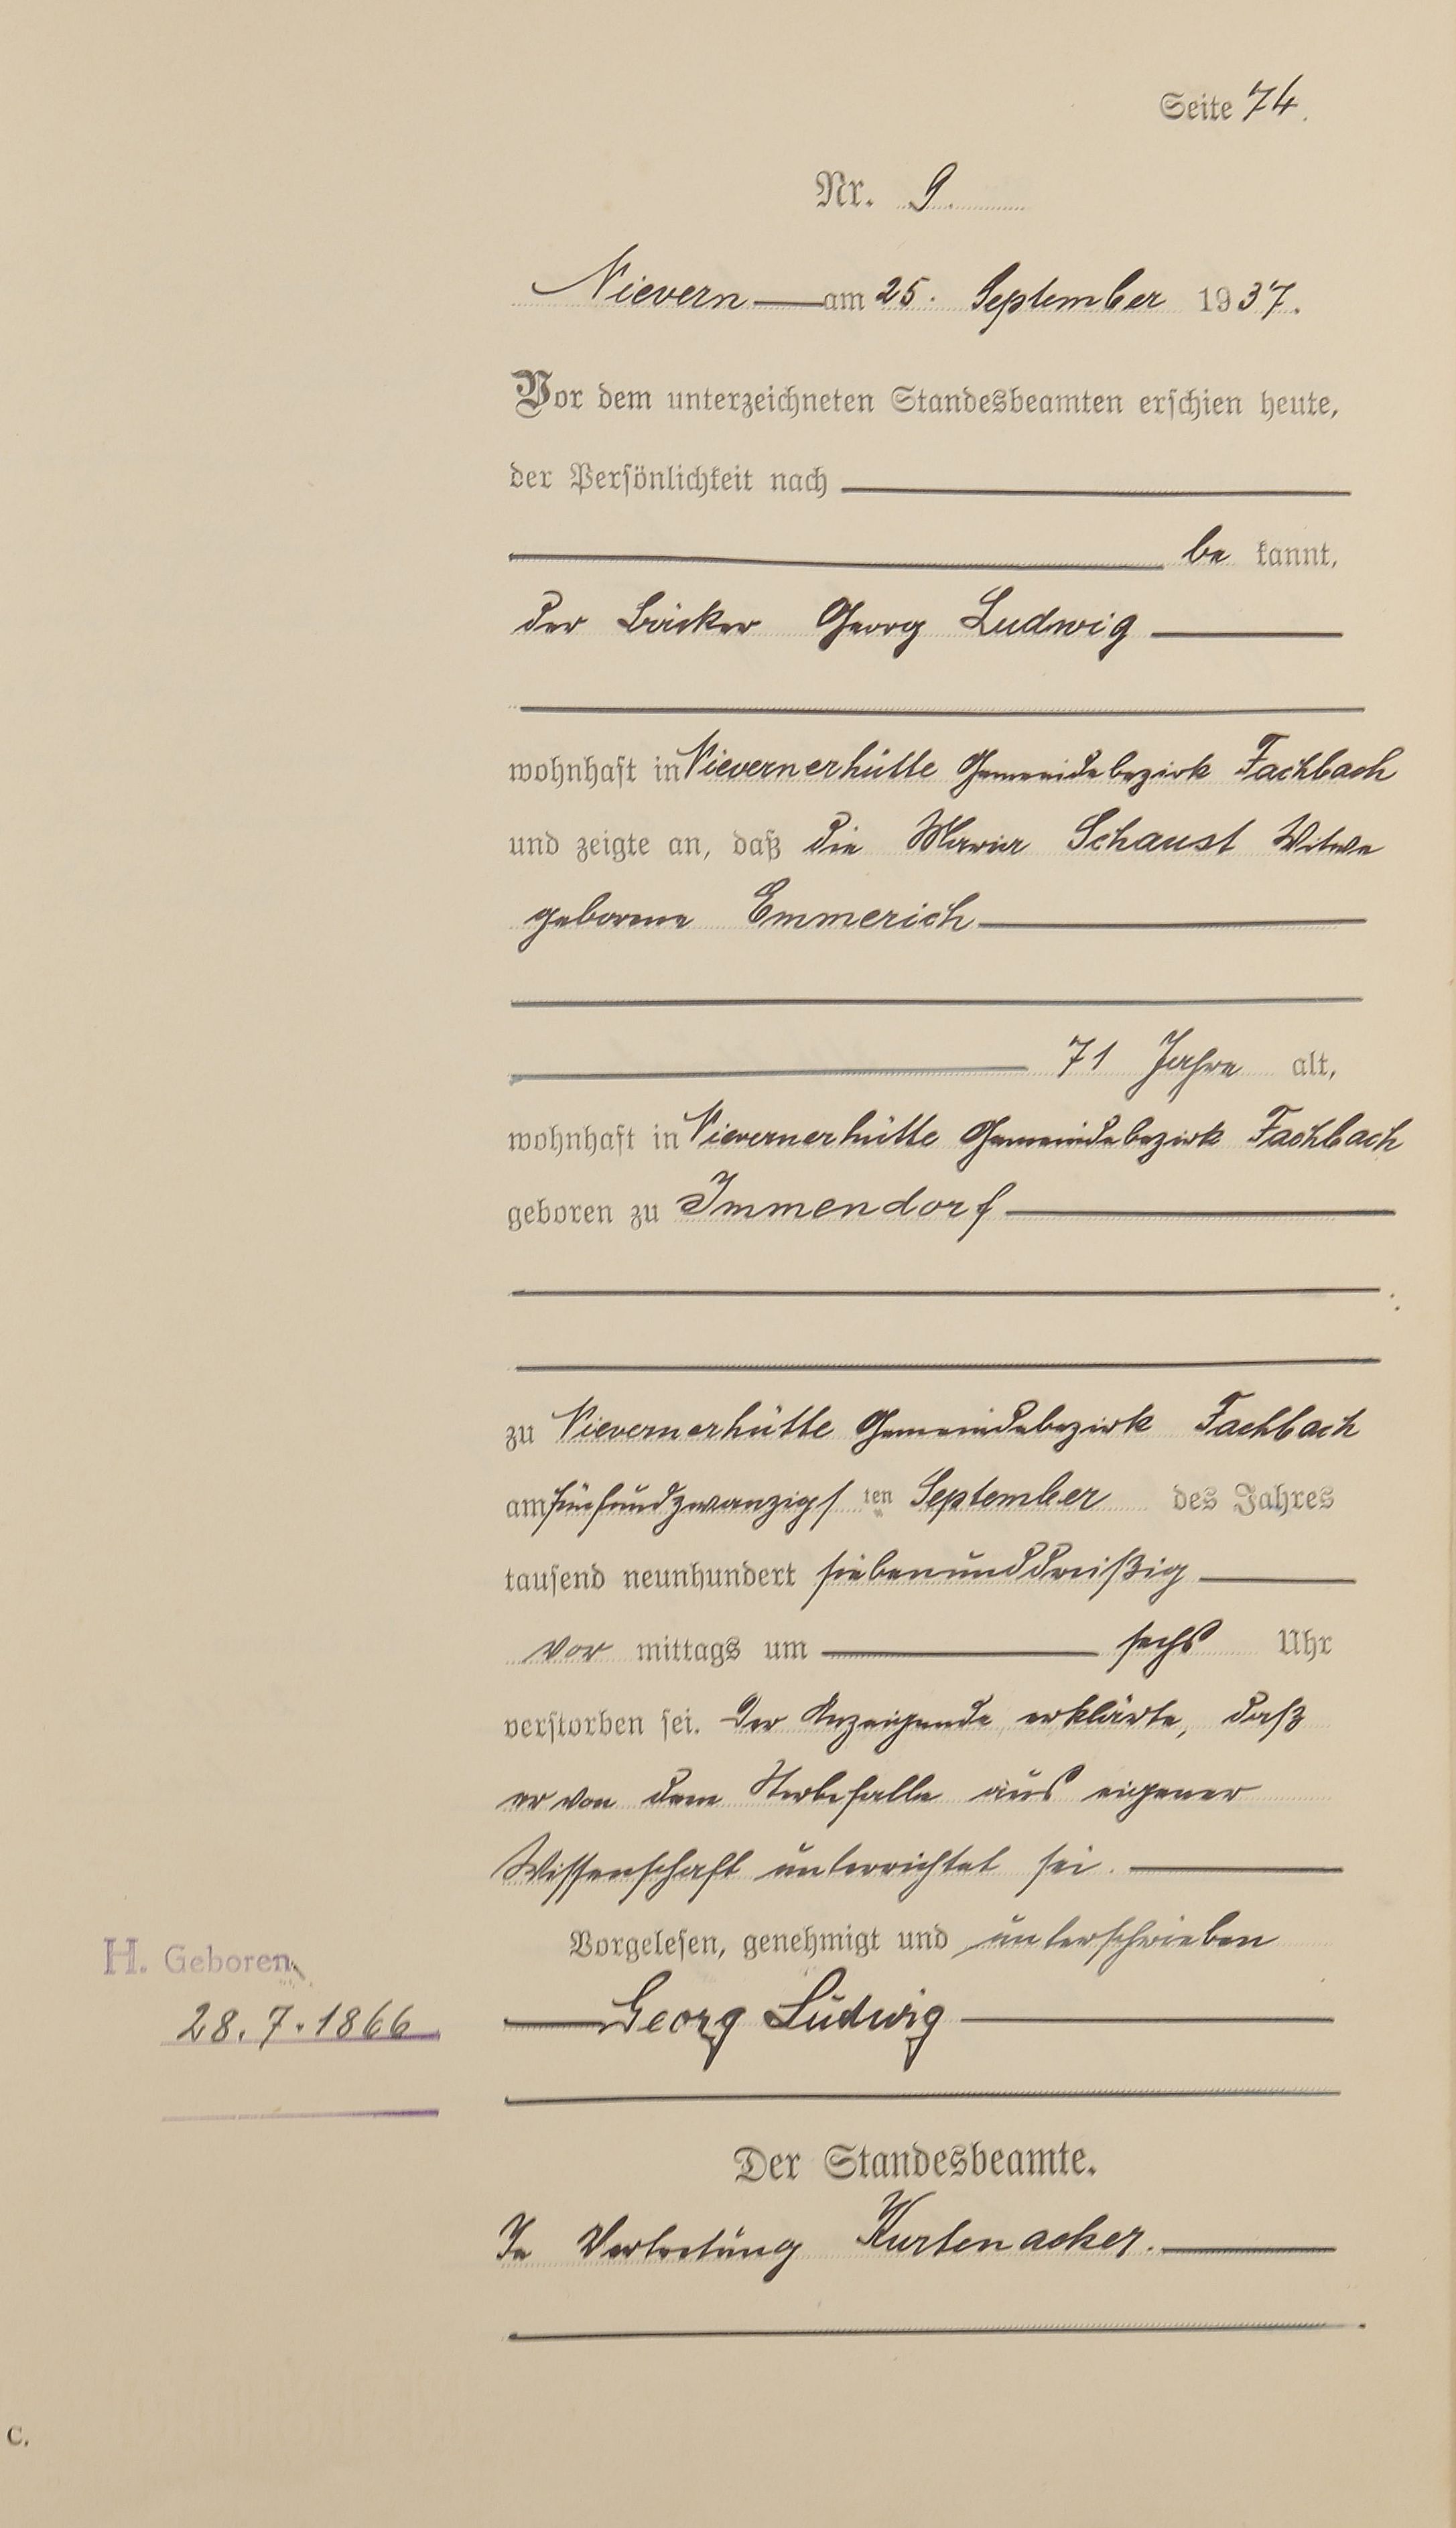 Seite 74.
Nr. 9.
Nievern am 25. September 1937.
Vor dem unterzeichneten Standesbeamten erschien heute,
der Persönlichkeit nach
be kannt,
der Bäcker Georg Ludwig
wohnhaft in Nievernerhütte Gemeindebezirk Fachbach
und zeigte an, daß die Maria Schaust Witwe
geborene Emmerich
71 Jahre alt,
wohnhaft in Nievernerhütte Gemeindebezirk Fachbach
geboren zu Immendorf
zu Nievernerhütte Gemeindebezirk Fachbach
am fünfundzwanzigsten September des Jahres
tausend neunhundert siebenunddreißig
vor mittags um sechs Uhr
verstorben sei. Der Anzeigende erklärte, daß
er von dem Sterbefalle aus eigener
Wissenschaft unterrichtet sei.
Vorgelesen, genehmigt und unterschrieben
H. Geboren
Georg Ludwig
28.7.1866
Der Standesbeamte.
In Vertretung Kurtenacker.
C.